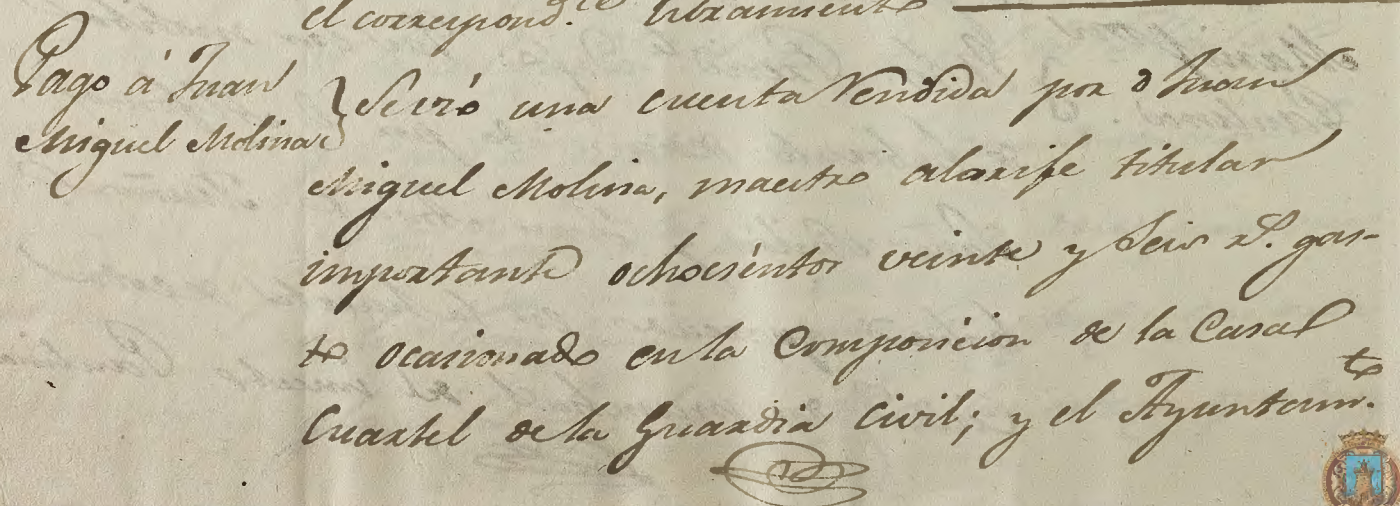 el correspond.te libramiento
Pago á Juan
Miguel Molina
Se vió una cuenta rendida por d Juan
Miguel Molina, maestro alarife titular
importante ochocientos veinte y seis rs. gas-
to ocasionado en la Composicion de la Casa
Cuartel de la Guardia Civil; y el Ayuntam.to